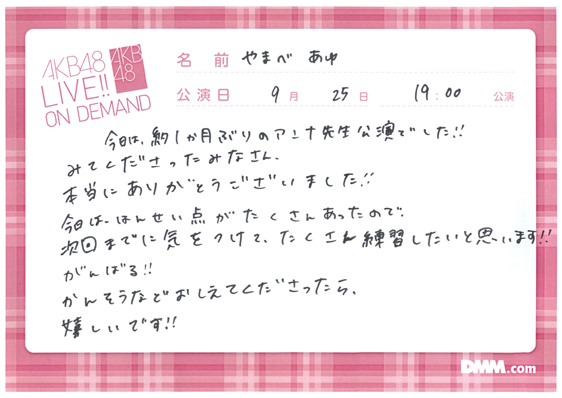 AKB48
LIVE!!
ON DEMAND
AKB
48
名 前 やまべ あゆ
公演日 9月 25日 19:00 公演
今日は、約1か月ぶりのアンナ先生公演でした!!
みてくださったみなさん、
本当にありがとうございました!!
今日は、はんせい点がたくさんあったので、
次回までに気をつけて、たくさん練習したいと思います!!
がんばる!!
かんそうなどおしえてくださったら、
嬉しいです!!
DMM.com